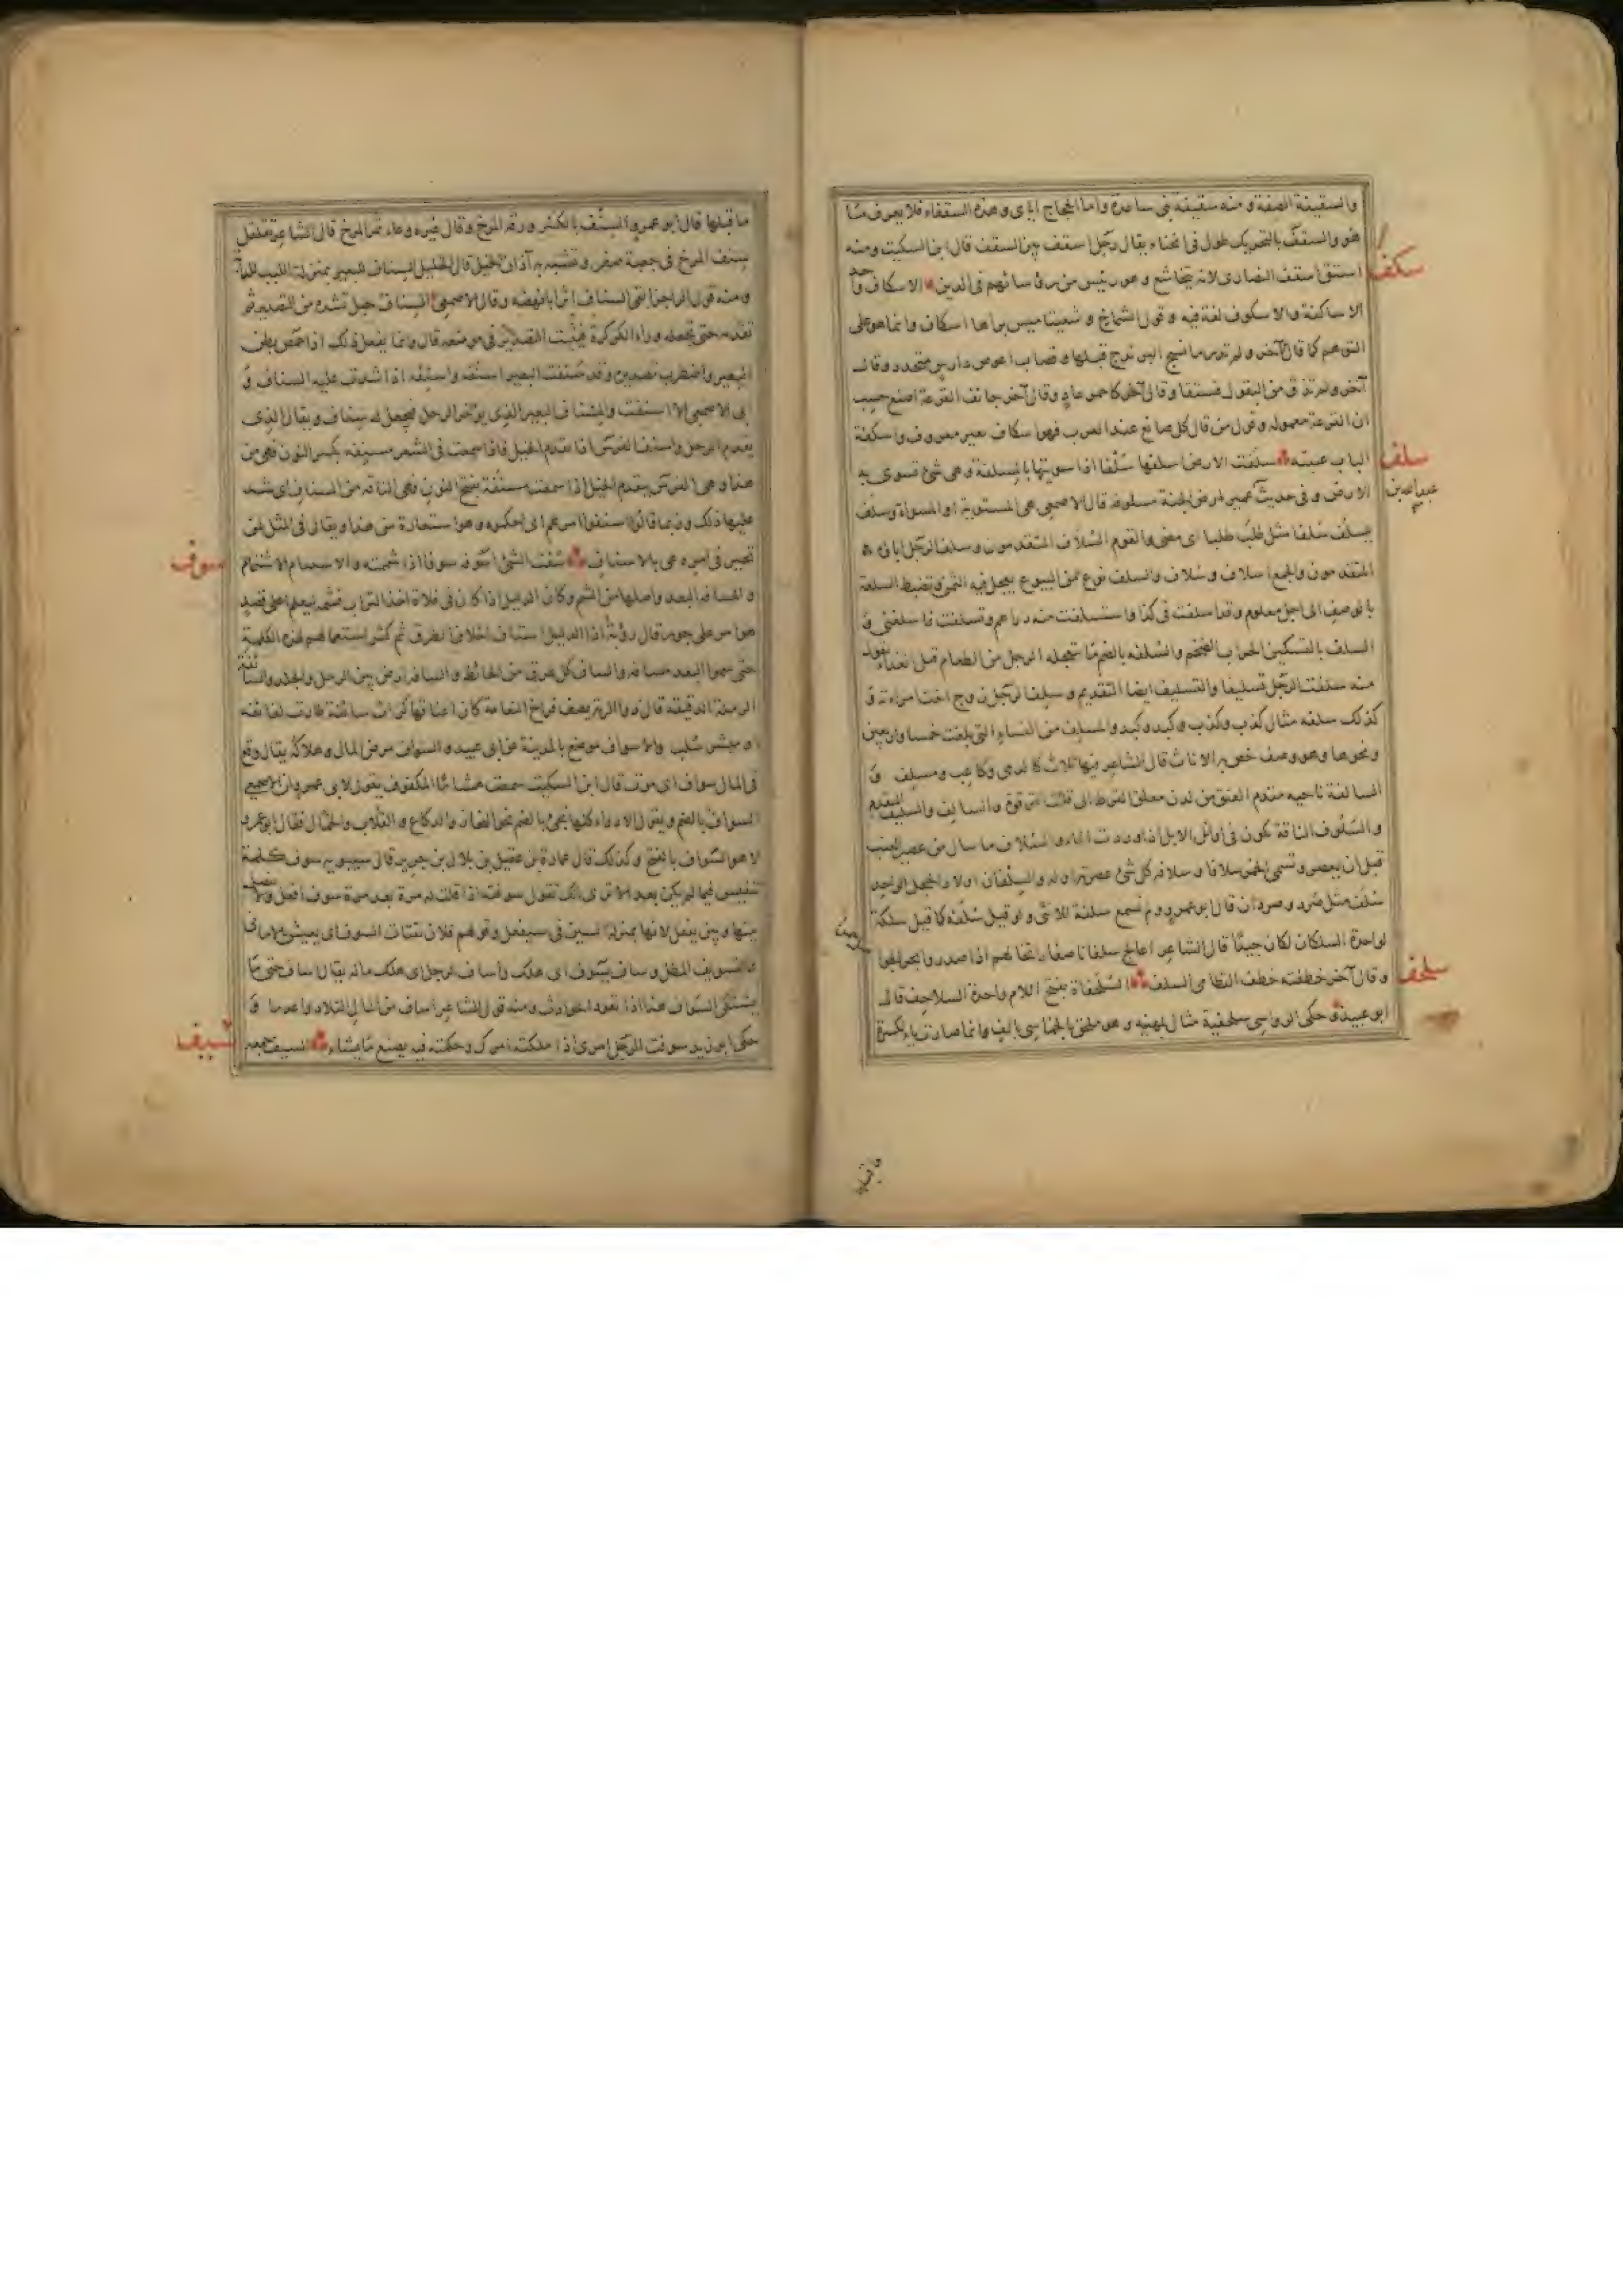 والسقيفة الصفة ومنه سقيفة بنى ساعدة واما الحجاج اياى وهذه السقفاء فلا يعرف ما
هو والسقف بالتحريك طول فى انحناء يقال رجل اسقف بين السقف قال ابن السكيت ومنه
اشتق اسقف النصارى لانه يتخاشع وهو رئيس من رؤسائهم فى الدين الاسكاف واحد
الاساكفة والاسكوف لغة فيه وقول الشماخ وشعبتا ميس براها اسكاف وانما هو على
التوهم كما قال آخر ولم تدر ما نسج اليرندج قبلها وقال
آخر ولم تذق من البقول فستقا وقال آخر كاحمر عاد وقال آخر جائف القرعة اصنع حسب
ان القرعة معمولة وقول من قال كل صانع عند العرب فهو اسكاف غير معروف واسكفة
الباب عتبته سلفت الارض اسلفها سلفا اذا سويتها بالمسلفة وهى شئ تسوى به
الارض وفى حديث عبيد بن عمير ارض الجنة مسلوفة قال الاصمعى هى المستوية او المسواة وسلف
يسلف سلفا مثل طلب طلبا اى مضى والقوم السلاف المتقدمون وسلف الرجل اباؤه
المتقدمون والجمع اسلاف وسلاف والسلف نوع من البيوع يعجل فيه الثمن وتضبط السلعة
بالوصف الى اجل معلوم وقد اسلفت فى كذا واستسلفت منه دراهم وتسلفت فاسلفنى و
السلف بالتسكين الجراب الضخم والسلفة بالضم ما يتعجله الرجل من الطعام قبل الغداء يقول
منه سلفت الرجل تسليفا والتسليف ايضا التقديم وسلف الرجل زوج اخت امراته و
كذلك سلفه مثال كذب وكذب وكبد وكبد والمسلف من النساء التى بلغت خمسا واربعين
ونحوها وهو وصف خص به الاناث قال الشاعر فيها ثلاث كالدمى وكاعب ومسلف و
السالفة ناحية مقدم العنق من لدن معلق القرط الى قلت الترقوة والسالف والسليف المتقدم
والسلوف الناقة تكون فى اوائل الابل اذا وردت الماء والسلاف ما سال من عصير العنب
قبل ان يعصر وتسمى الخمر سلافا وسلافة كل شئ عصرته اوله والسلفان اولاد الحجل الواحد
سلف مثل صرد وصردان قال ابو عمرو ولم نسمع سلفة للانثى ولو قيل سلفة كما قيل سلكة
لواحدة السلكان لكان جيدا قال الشاعر اعالج سلفانا صغارا تخالهم اذا صدروا بجر الحواصل
وقال آخر خطفنه خطف القطامى السلف السلحفاة بفتح اللام واحدة السلاحف قال
ابو عبيدة وحكى الرواسى سلحفية مثال بلهنية وهو ملحق بالخماسى بالف وانما صارت ياء لكسرة
سكف
سلف
سلحف
ما قبلها قال ابو عمرو السنف بالكسر ورقة المرخ وقال غيره وعاء ثمر المرخ قال الشاعر تقلقل
سنف المرخ فى جعبة صفر وتشبه به آذان الخيل قال الخليل السناف للبعير بمنزلة اللبب للدابة
ومنه قول الراجز ابقى السناف اثرا بانهضه وقال الاصمعى السناف حبل تشده من التصدير ثم
تقدمه حتى تجعله وراء الكركرة فيثبت التصدير فى موضعه قال وانما يفعل ذلك اذا خمص بطن
البعير واضطرب تصديره وقد سنفت البعير اسنفه واسنفه اذا شددت عليه السناف و
ابى الاصمعى الا اسنفت والمسناف البعير الذى يؤخر الرحل فيجعل له سناف ويقال الذى
يقدم الرحل واسنف الفرس اذا تقدم الخيل فاذا سمعت فى الشعر مسنفة بكسر النون فهى من
هذا وهى الفرس يتقدم الخيل واذا سمعت مسنفة بفتح النون فهى الناقة من السناف اى شد
عليها ذلك وربما قالوا اسنفوا امرهم اى احكموه وهو استعارة من هذا ويقال فى المثل لمن
تحير فى امره عى بالاسناف سفت الشئ اسوفه سوفا اذا شممته والاستياف الاشتمام
والمسافة البعد واصلها من الشم وكان الدليل اذا كان فى فلاة اخذ التراب فشمه ليعلم اعلى قصد
هو ام على جور قال رؤبة اذا الدليل استاف اخلاق الطرق ثم كثر استعمالهم لهذه الكلمة
حتى سموا البعد مسافة والساف كل عرق من الحائط والسائفة ارض بين الرمل والجلد والسائفة
الرملة الدقيقة قال ذو الرمة يصف فراخ النعامة كان اعناقها كراث سائفة طارت لفائفه
او هيشر سلب والاسواف موضع بالمدينة عن ابى عبيد والسواف مرض المال وهلاكه يقال وقع
فى المال سواف اى موت قال ابن السكيت سمعت هشاما المكفوف يقول لابى عمرو ان الاصمعى
السواف بالضم ويقول الادواء كلها تجئ بالضم نحو النحاز والدكاع والقلاب والخمال فقال ابو عمرو
لا هو السواف بالفتح وكذلك قال عمارة بن عقيل بن بلال بن جرير قال سيبويه سوف كلمة
تنفيس فيما لم يكن بعد الا ترى انك تقول سوفته اذا قلت له مرة بعد مرة سوف افعل ولا يفصل
بينها وبين يفعل لانها بمنزلة السين فى سيفعل وقولهم فلان يقتات السوف اى يعيش بالامانى
والتسويف المطل وساف يسوف اى هلك واساف الرجل اى هلك ماله يقال اساف حتى ما
يشتكى السواف هذا اذا تعود الحوادث ومنه قول الشاعر اساف من المال التلاد واعدما و
حكى ابو زيد سوفت الرجل امرى اذا ملكته امرك وحكمته فيه يصنع ما يشاء السيف جمعه
سوف
سيف